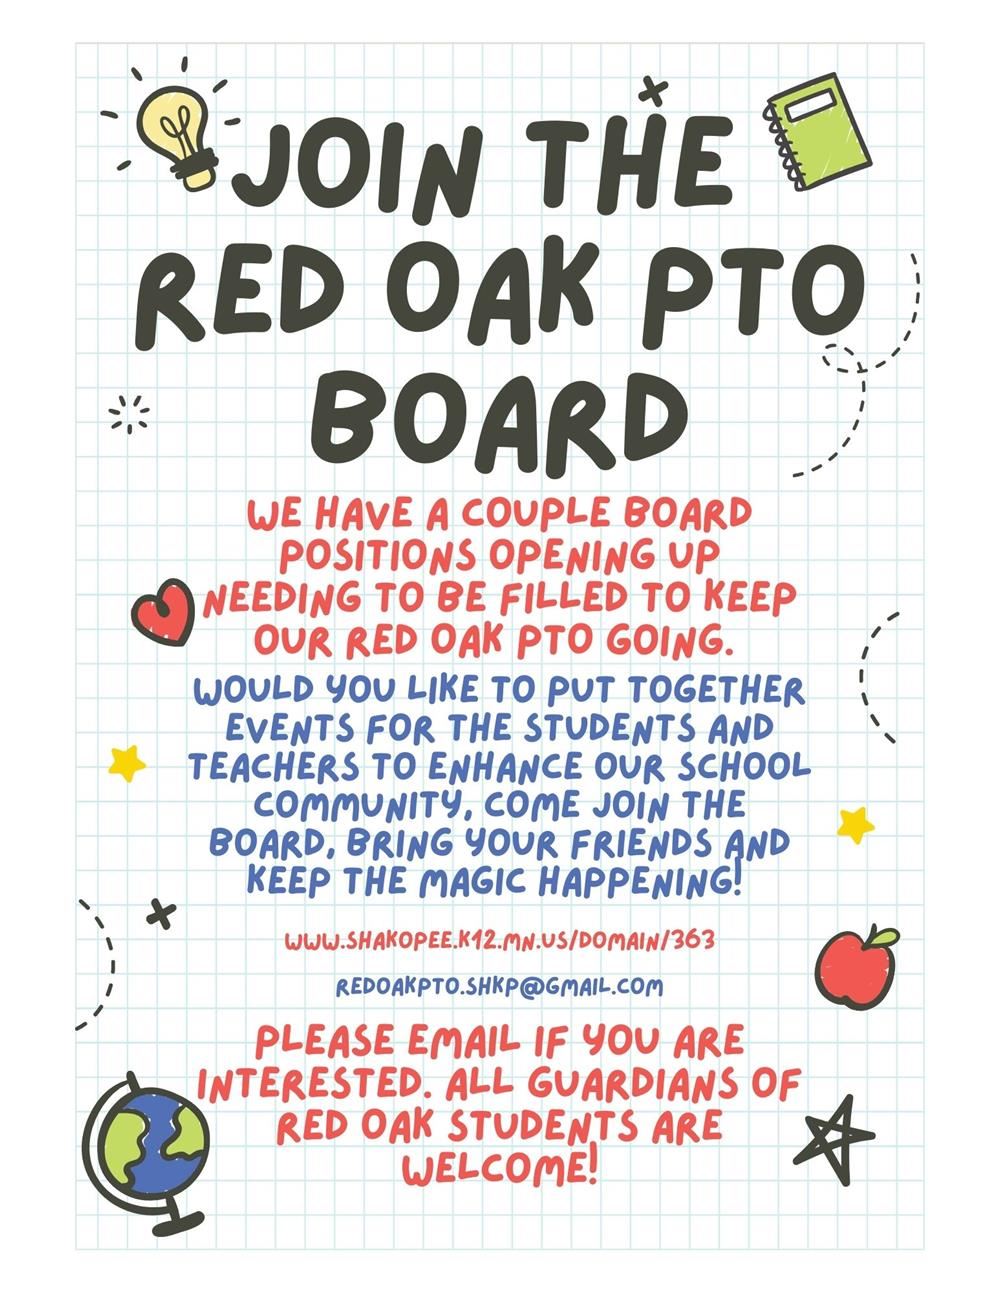 JOIN THE
RED OAK PTO
BOARD
WE HAVE A COUPLE BOARD
POSITIONS OPENING UP
NEEDING TO BE FILLED TO KEEP
OUR RED OAK PTO GOING.
WOULD YOU LIKE TO PUT TOGETHER
EVENTS FOR THE STUDENTS AND
TEACHERS TO ENHANCE OUR SCHOOL
COMMUNITY, COME JOIN THE
BOARD, BRING YOUR FRIENDS AND
KEEP THE MAGIC HAPPENING!
WWW.SHAKOPEE.K12.MN.US/DOMAIN/363
REDOAKPTO.SHKP@GMAIL.COM
PLEASE EMAIL IF YOU ARE
INTERESTED. ALL GUARDIANS OF
RED OAK STUDENTS ARE
WELCOME!